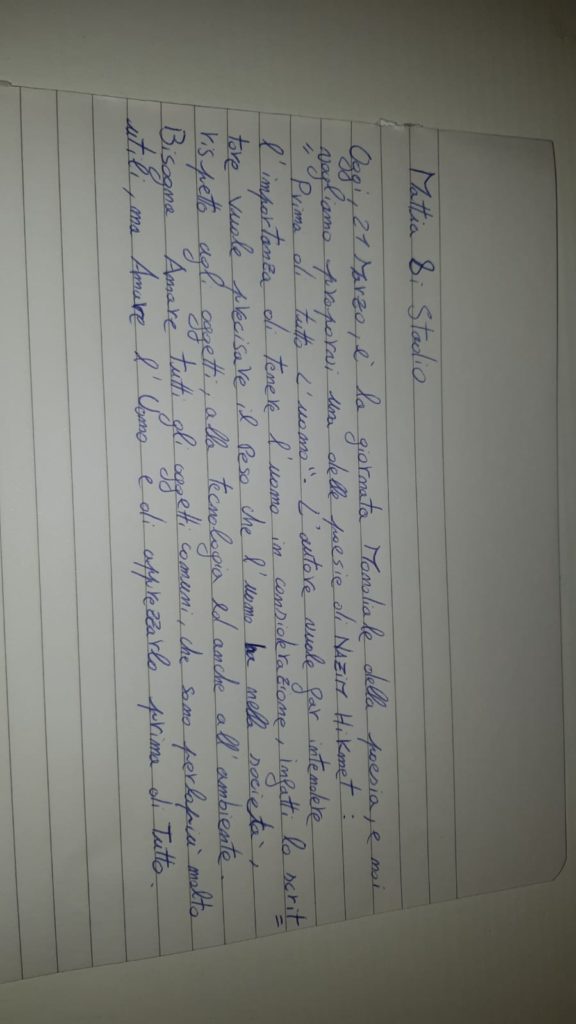 Mattia Di Stadio
Oggi, 21 Marzo, è la giornata Mondiale della poesia, e noi
vogliamo proporvi una delle poesie di NAZIM HIKMET:
"Prima di tutto L'uomo". L'autore vuole far intendere
l'importanza di tenere l'uomo in considerazione, infatti lo scrit=
tore vuole precisare il Peso che l'uomo ha nella società,
rispetto agli oggetti, alla tecnologia ed anche all'ambiente.
Bisogna Amare tutti gli oggetti comuni, che sono perlopiù molto
utili, ma Amare l'Uomo e di apprezzarlo prima di Tutto.